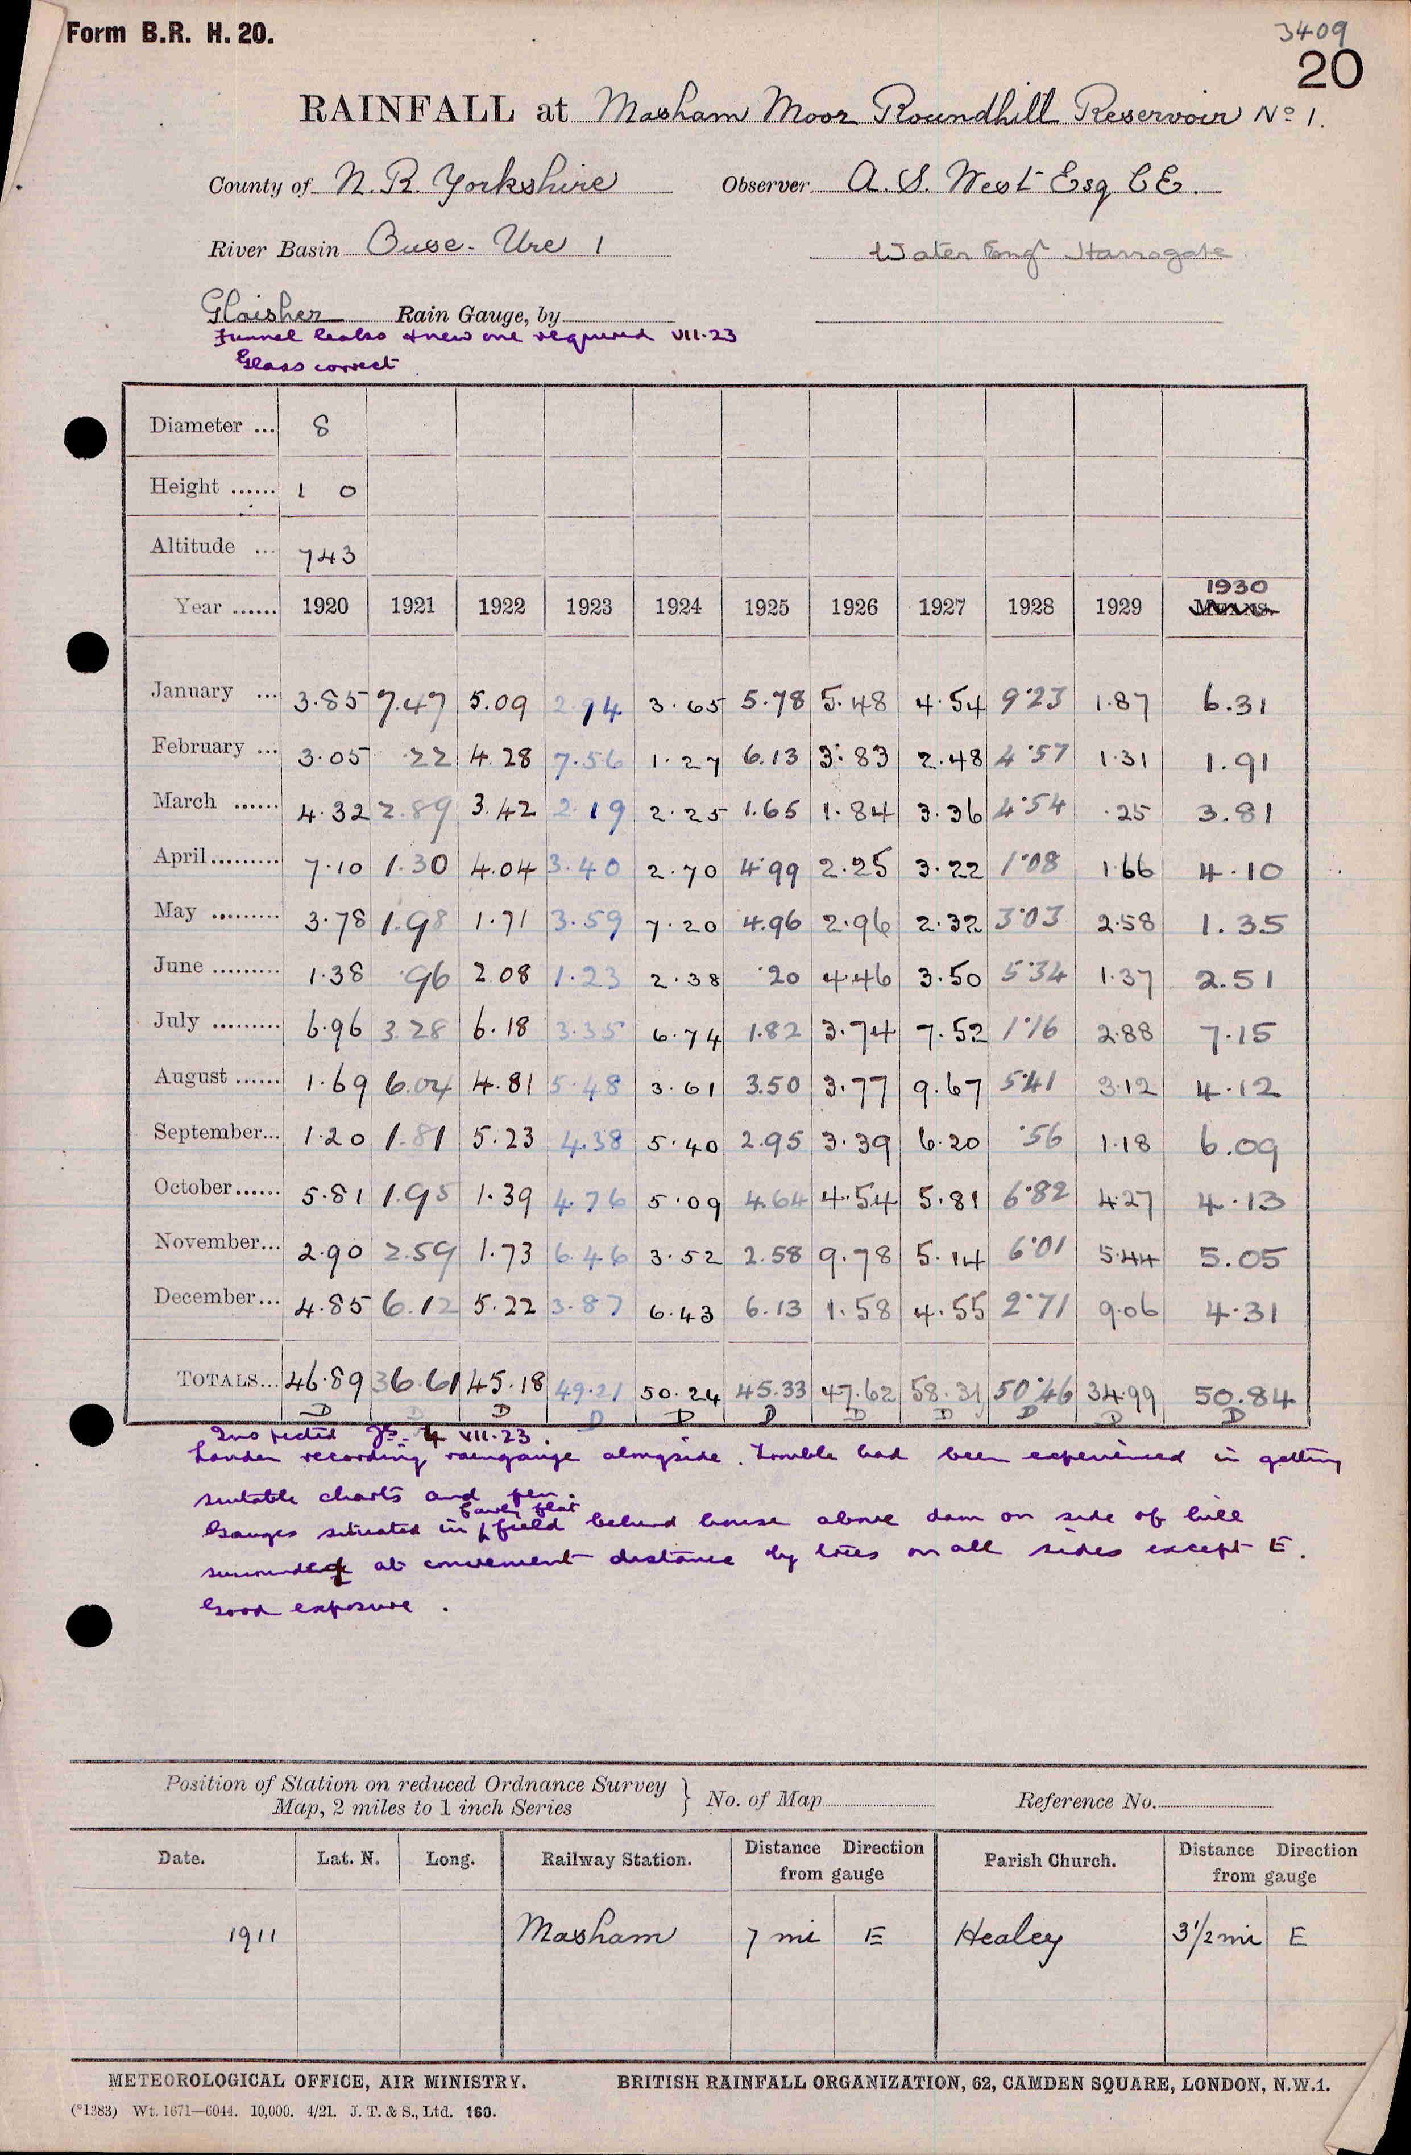 Form B.R. H. 20.
3409
20
RAINFALL at Masham Moor Roundhill Reservoir No 1.
County of N. R. Yorkshire Observer A. S. West Esq C E.
River Basin Ouse. Ure 1 Water Engr Harrogate
Glaisher Rain Gauge, by
Funnel leaks & new one required VII.23
Glass correct
Diameter ... 8
Height ...... 1 0
Altitude ... 743
Year ...... 1920 1921 1922 1923 1924 1925 1926 1927 1928 1929 1930 Means.
January ... 3.85 7.47 5.09 2.94 3.65 5.78 5.48 4.54 9.23 1.87 6.31
February ... 3.05 .22 4.28 7.56 1.27 6.13 3.83 2.48 4.57 1.31 1.91
March ...... 4.32 2.89 3.42 2.19 2.25 1.65 1.84 3.36 4.54 .25 3.81
April......... 7.10 1.30 4.04 3.40 2.70 4.99 2.25 3.22 1.08 1.66 4.10
May ......... 3.78 1.98 1.71 3.59 7.20 4.96 2.96 2.32 3.03 2.58 1.35
June ......... 1.38 .96 2.08 1.23 2.38 .20 4.46 3.50 5.34 1.37 2.51
July ......... 6.96 3.28 6.18 3.35 6.74 1.82 3.74 7.52 1.16 2.88 7.15
August ...... 1.69 6.04 4.81 5.48 3.61 3.50 3.77 9.67 5.41 3.12 4.12
September... 1.20 1.81 5.23 4.38 5.40 2.95 3.39 6.20 .56 1.18 6.09
October...... 5.81 1.95 1.39 4.76 5.09 4.64 4.54 5.81 6.82 4.27 4.13
November... 2.90 2.59 1.73 6.46 3.52 2.58 9.78 5.14 6.01 5.44 5.05
December... 4.85 6.12 5.22 3.87 6.43 6.13 1.58 4.55 2.71 9.06 4.31
Totals... 46.89 36.61 45.18 49.21 50.24 45.33 47.62 58.31 50.46 34.99 50.84
D D D D D D D D D D D
Inspected 4 VII.23.
Lander recording raingauge alongside. Trouble had been experienced in getting
suitable charts and pen.
Gauges situated in fairly flat field behind house above dam on side of hill
surrounded at convenient distance by trees on all sides except E.
Good exposure.
Position of Station on reduced Ordnance Survey
Map, 2 miles to 1 inch Series } No. of Map Reference No.
Date. Lat. N. Long. Railway Station. Distance Direction from gauge Parish Church. Distance Direction from gauge
1911 Masham 7 mi E Healey 3 1/2 mi E
METEOROLOGICAL OFFICE, AIR MINISTRY. BRITISH RAINFALL ORGANIZATION, 62, CAMDEN SQUARE, LONDON, N.W.1.
(*1383) Wt. 1671—6044. 10,000. 4/21. J. T. & S., Ltd. 160.